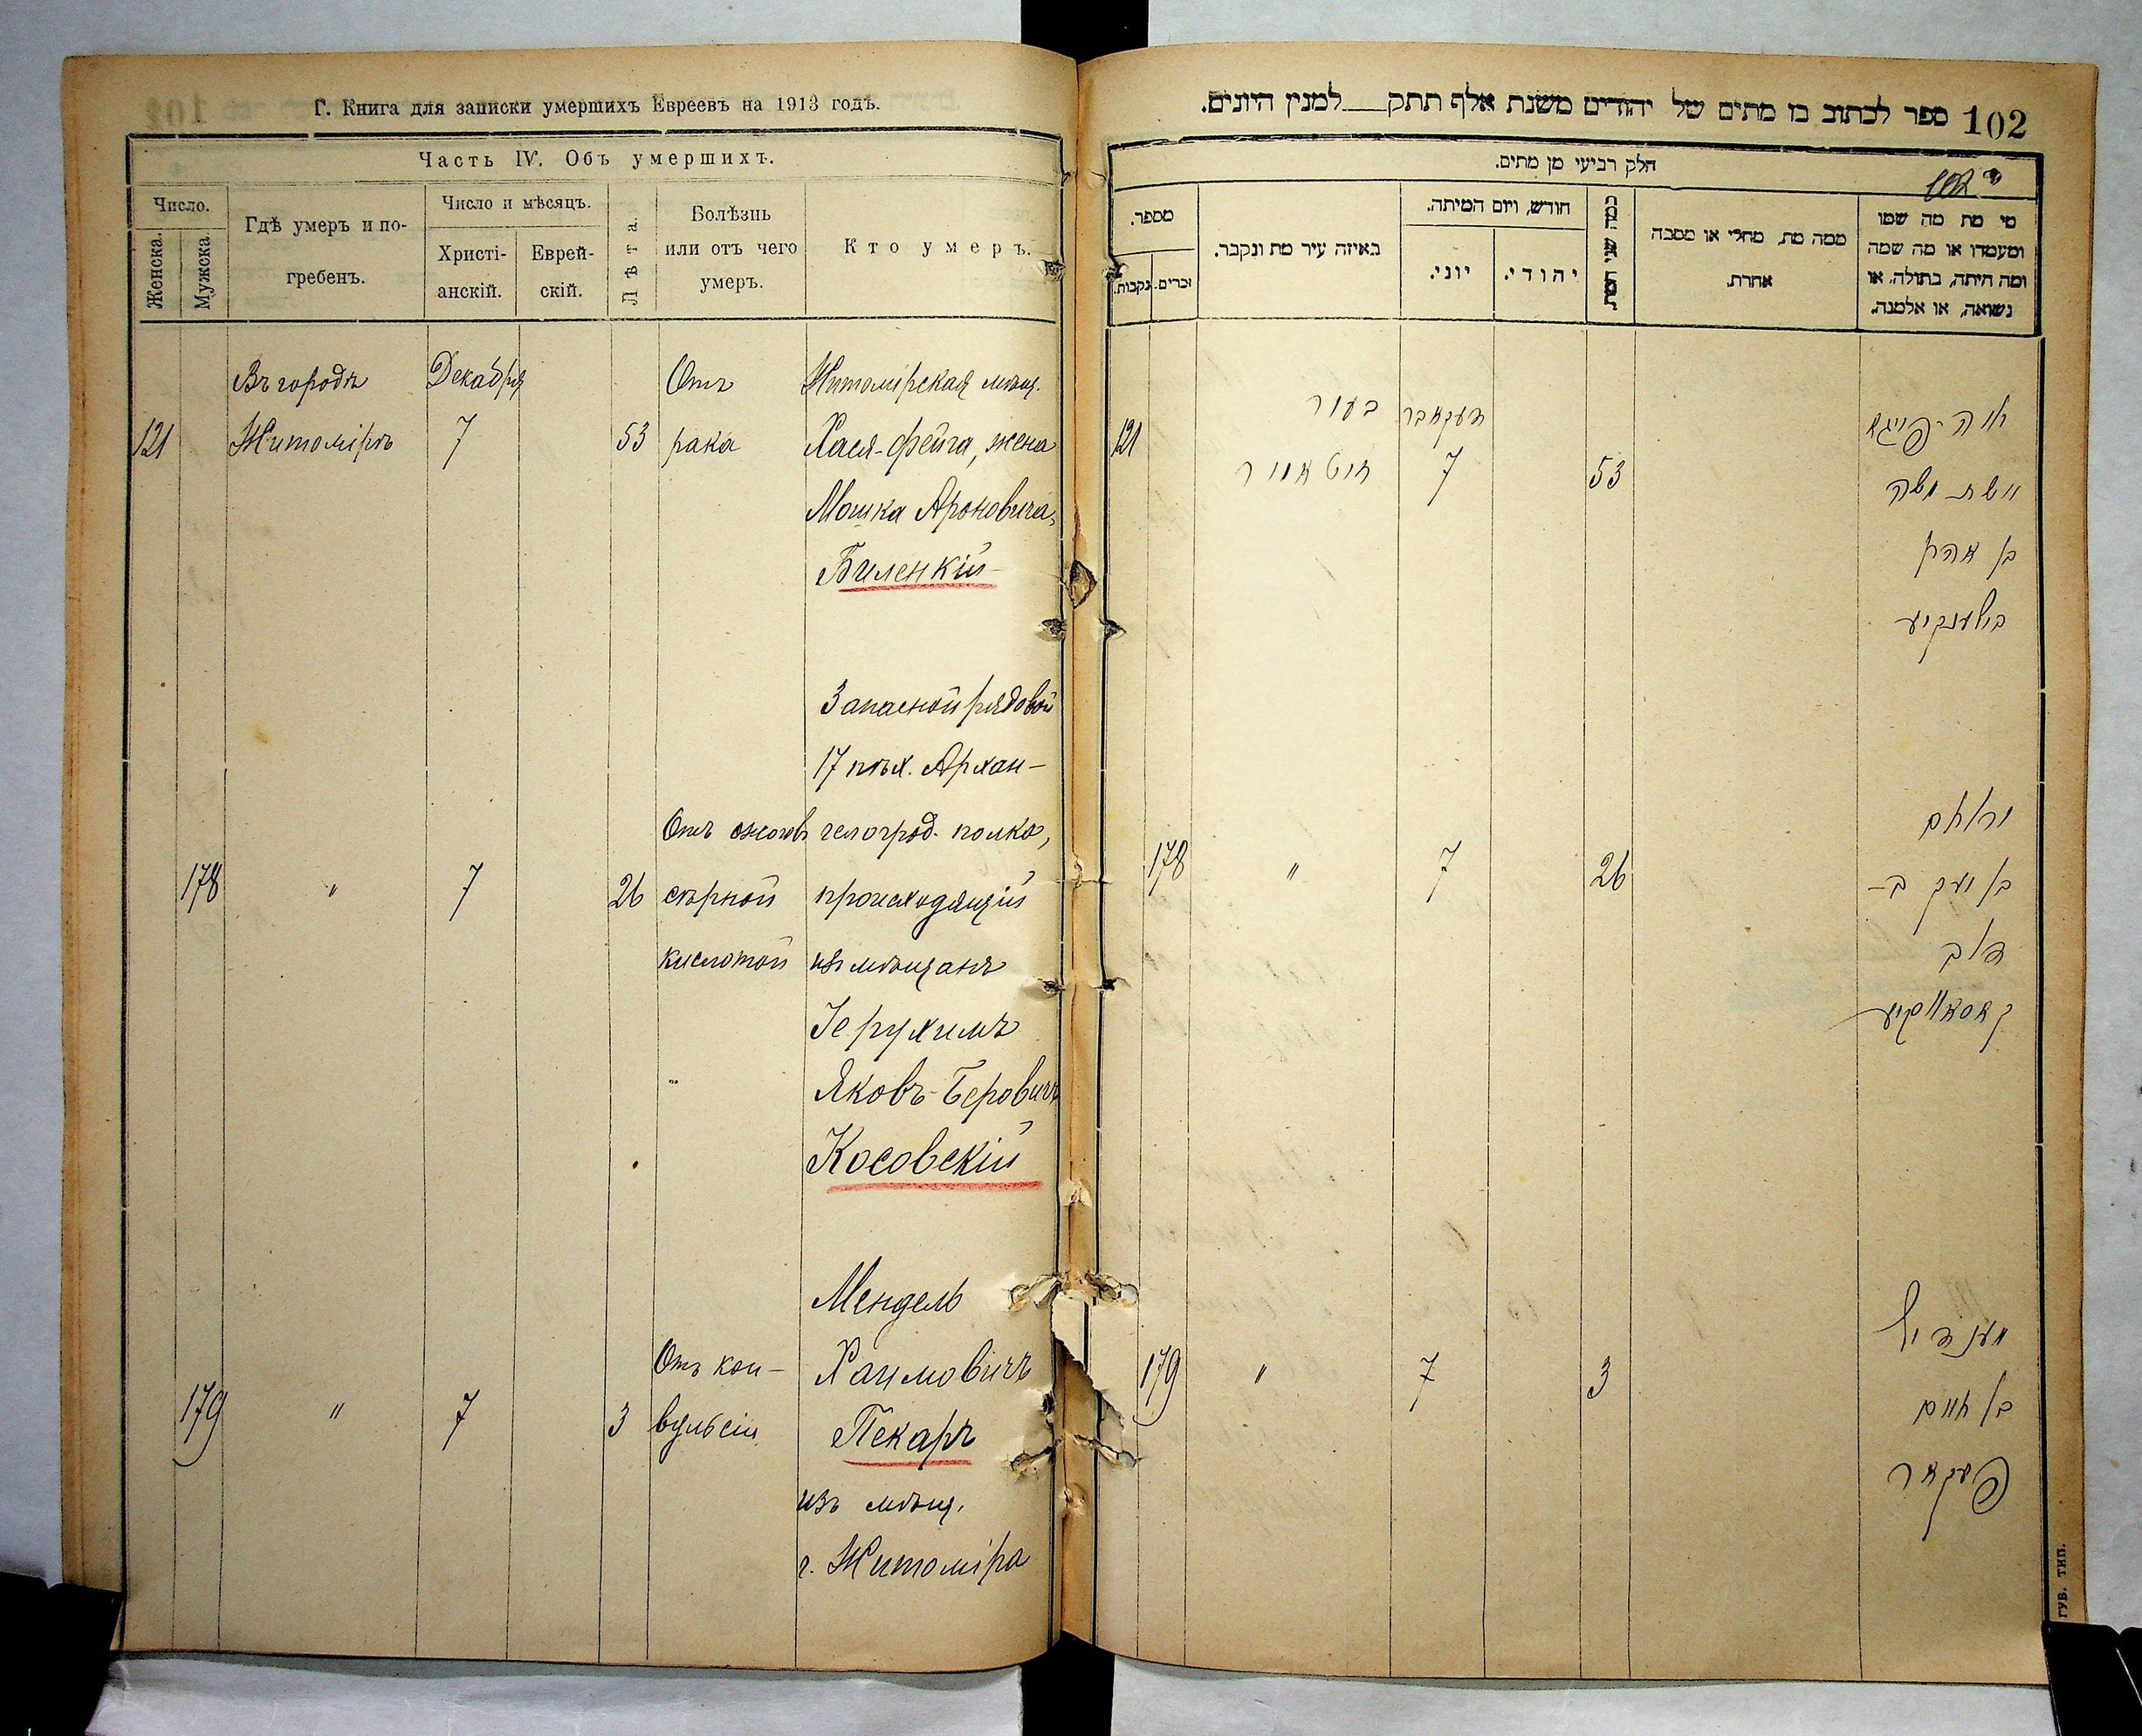 Г. Книга для записки умершихъ Евреевъ на 1913 годъ.
Часть IV. Объ умершихъ.
Число.
Женска.
Мужска.
Гдѣ умеръ и по-
гребенъ.
Число и мѣсяцъ.
Христі-
анскій.
Еврей-
скій.
Лѣта.
Болѣзнь
или отъ чего
умеръ.
Кто умеръ.
Въ городѣ Декабря Отъ Житомірская мѣщ.
121 Житомірѣ 7 53 рака Хася-Фейга, жена
Мошка Ароновича
Биленкій
Запасной рядовой
17 пѣх. Архан-
Отъ ожоговъ гелогрод. полка,
178 " 7 26 сѣрной происходящій
кислотой изъ мѣщанъ
Іерухимъ
Яковъ-Беровичъ
Косовскій
Мендель
Отъ кон- Хаимовичъ
179 " 7 3 вульсіи Пекаръ
изъ мѣщ.
г. Житоміра
102 ספר לכתוב בו מתים של יהודים משנת אלף תתק למנין היונים.
חלק רביעי מן מתים.
102
מספר.
נקבות.
זכרים.
באיזה עיר מת ונקבר.
חודש, ויום המיתה.
יוני.
יהודי.
כמה שני המת
ממה מת, מחלי או מסבה
אחרת.
מי מת מה שמו
ומעמדו או מה שמה
ומה היתה, בתולה, או
נשואה, או אלמנה.
121 בעיר דעקאבר
זיטאמיר 7 53
חיה-פייגא
אשת משה
בן אהרן
בילענקיע
ירוחם
178 " 7 26 בן יעקב
דוב
קאסאווסקיע
מענדיל
179 " 7 3 בן חיים
פעקאר
ГУБ. ТИП.